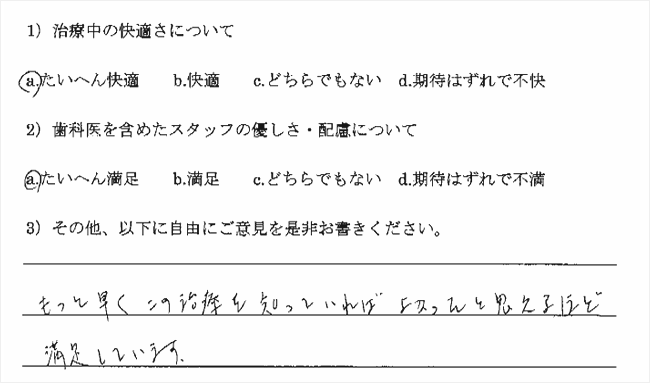 1）治療中の快適さについて
a.たいへん快適 b.快適 c.どちらでもない d.期待はずれで不快
2）歯科医を含めたスタッフの優しさ・配慮について
a.たいへん満足 b.満足 c.どちらでもない d.期待はずれで不満
3）その他、以下に自由にご意見を是非お書きください。
もっと早くこの治療を知っていれば よかったと思えるほど
満足しています。